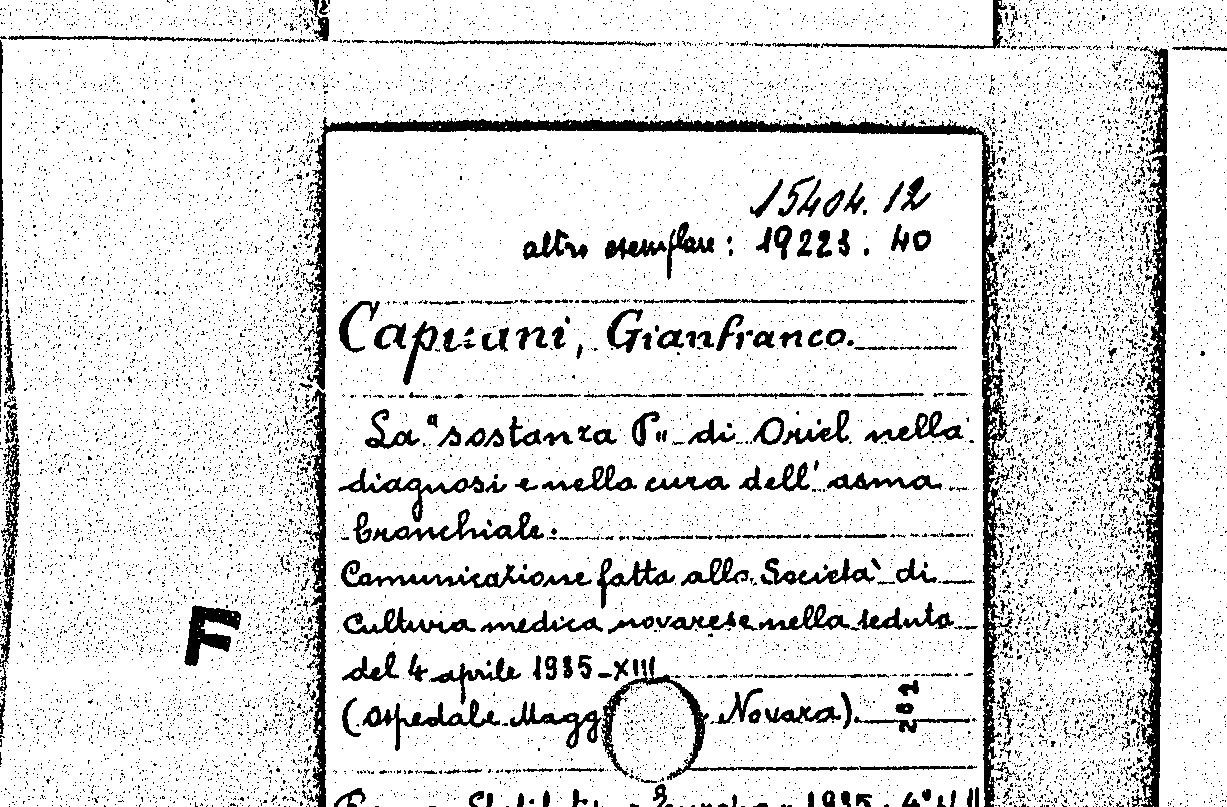 15404.12
altro esemplare: 19223.40
Gianfranco.
La "sostanza P" di Oriel nella
diagnosi e nella cura dell' asma
bronchiale.
Comunicazione fatta alla Società di
Cultura medica novarese nella seduta
del 4 aprile 1935-XIII
(Ospedale Novara).
282
F